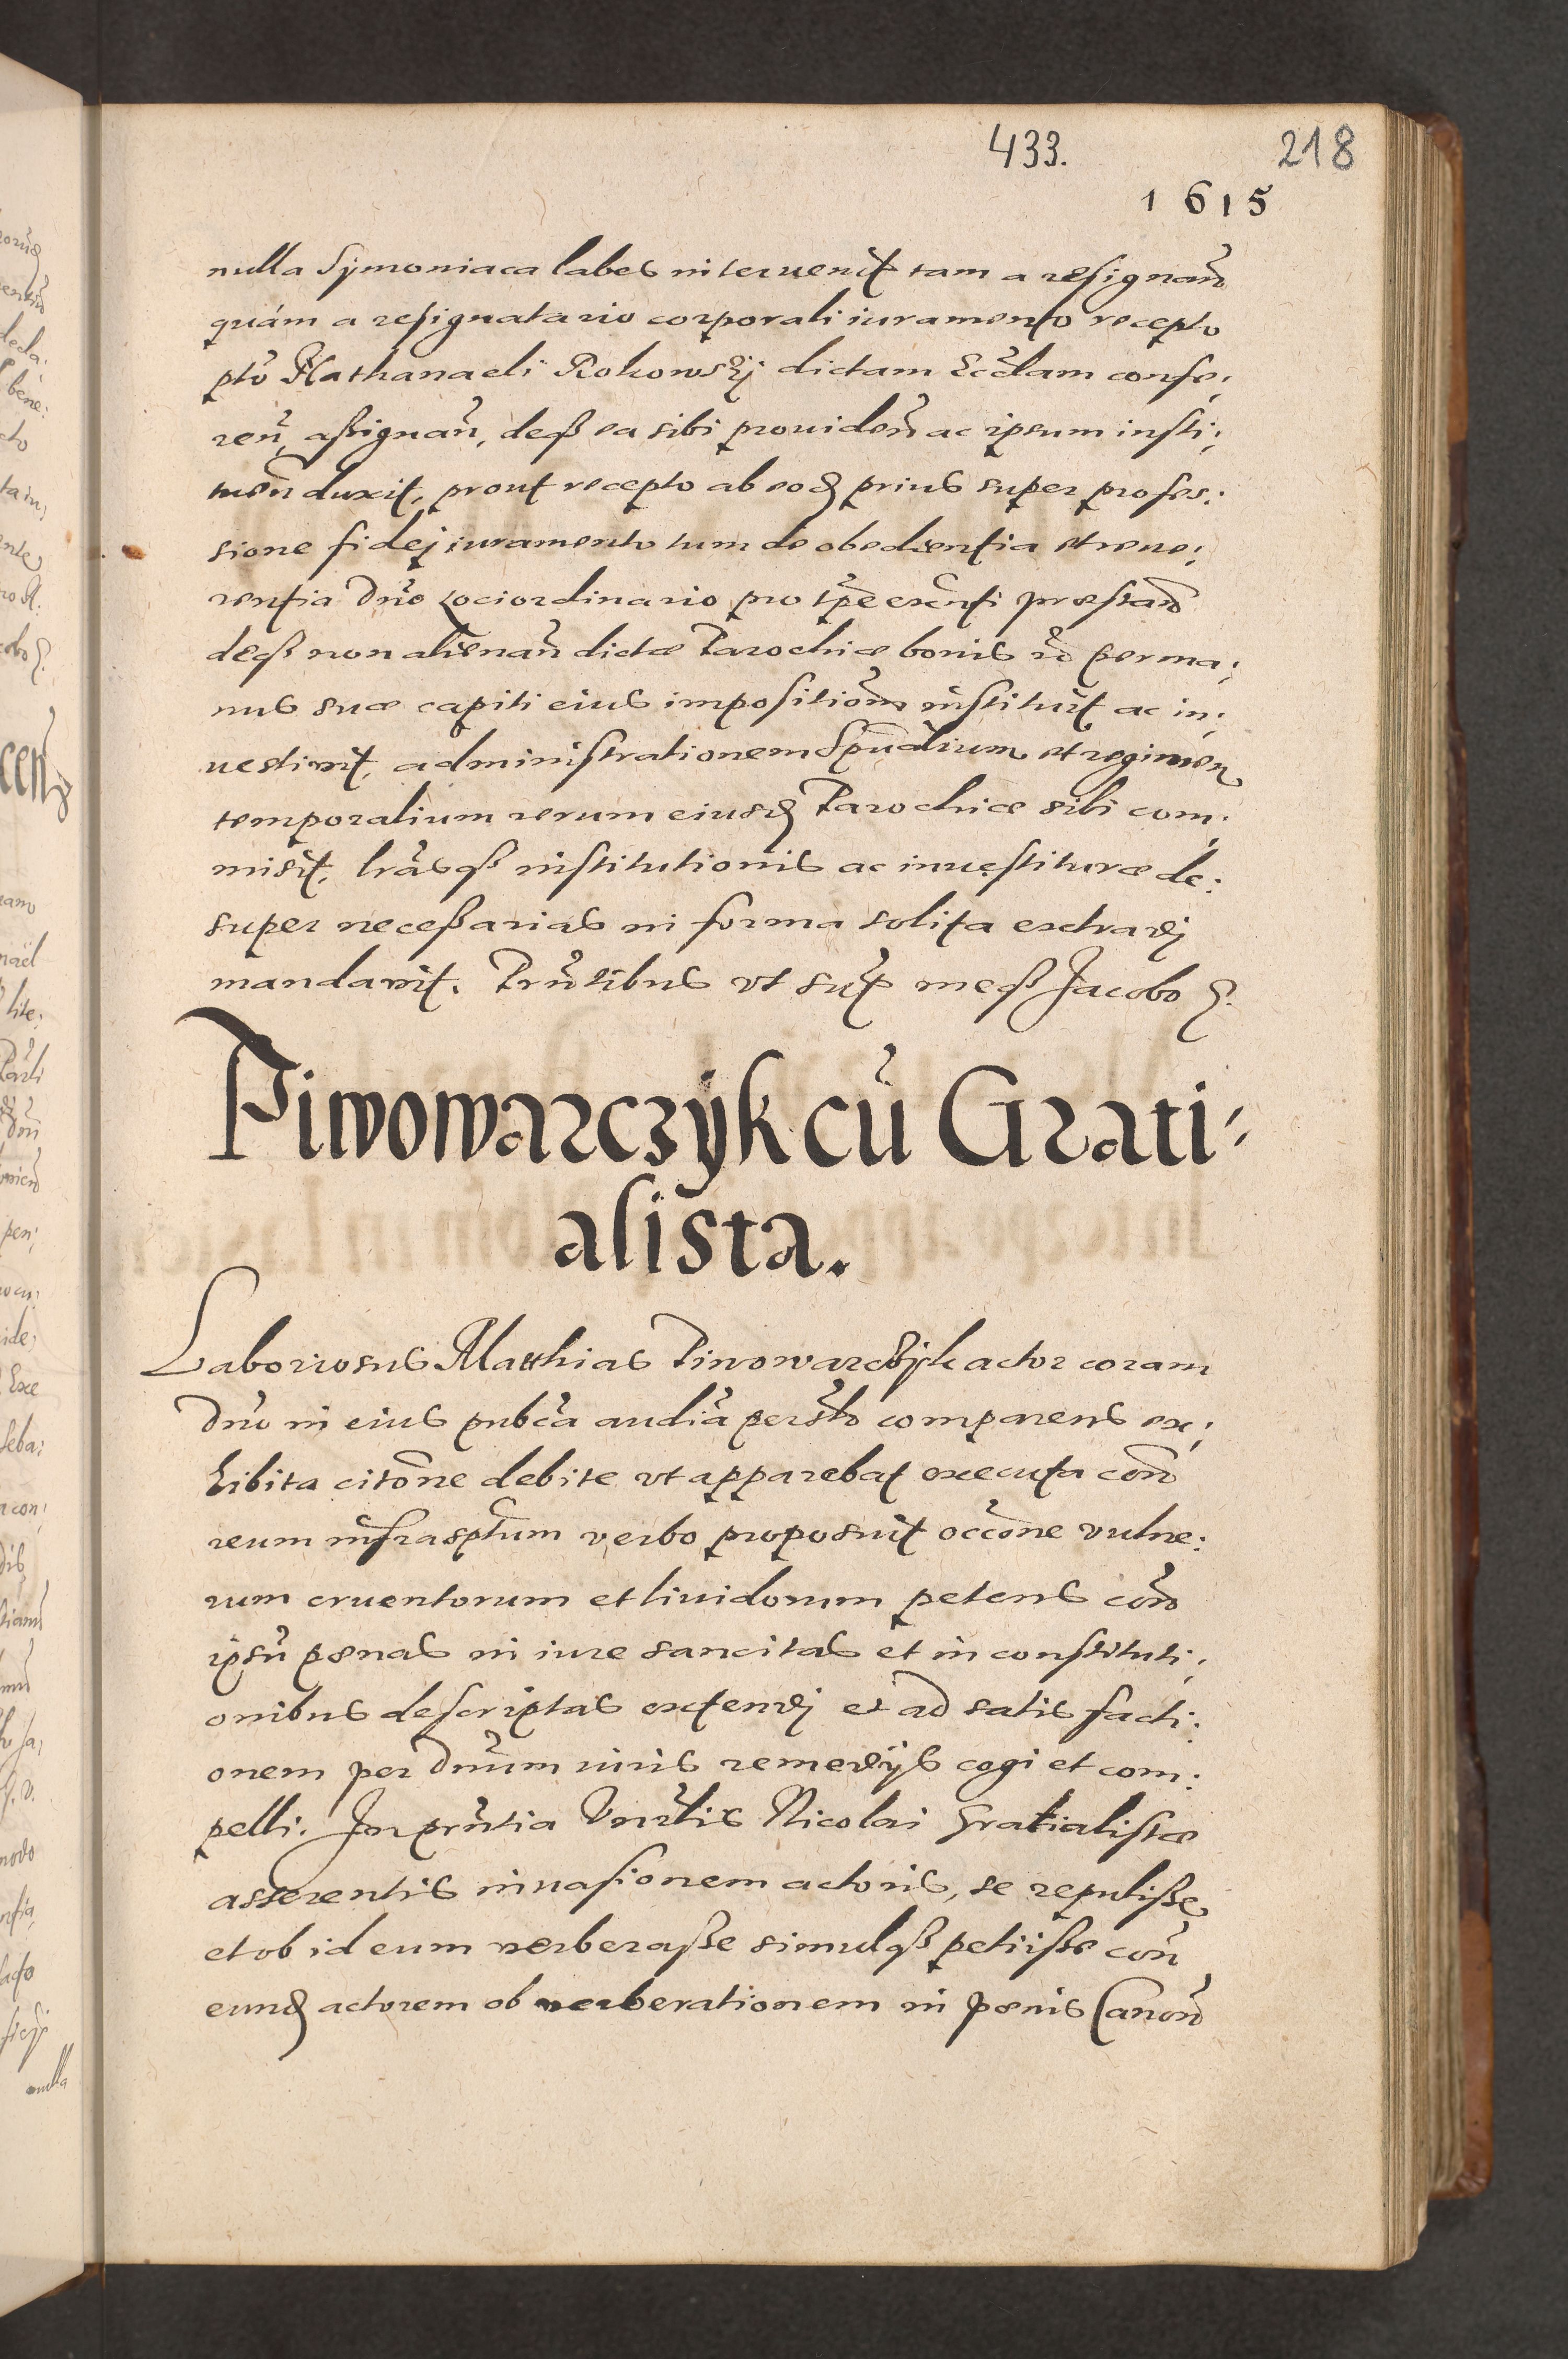 433. 218
1615
nulla Symoniaca labes interuenit tam a resignan̄
quám a resignatario corporali iuramento recepto
pto Nathanaeli Rokowskj dictam Eccl̄am confe:
ren̄, assignan̄, deq3 ea sibi prouiden̄ ac ipsum insti:
tuen̄ duxit, prout recepto ab eod prius super profes:
sione fidej iuramento tum de obedientia et reue:
rentia Dn̄o Lociordinario pro tp̄e exn̄ti præstan̄
deq3 non alienan̄ dictæ Parochiæ bonis id per ma:
nus suæ capiti eius impositionem instituit ac in:
uestiuit, administrationem Spūalium et regimen
temporalium rerum eiusd Parochiæ sibi com:
misit, lrāsq3 institutionis ac inuestituræ de:
super necessarias in forma solita extradj
mandauit. Prn̄tibus vt supra meq3 Jacobo
Piwowarczÿk cū Grati-
alista.
Laboriosus Matthias Piwowarczyk actor coram
Dn̄o in eius pub̄ca audiā person̄lr comparens ex:
hibita citōne debite vt apparebat executa con̄
reum infrasptum verbo proposuit occōne vulne:
rum cruentorum et liuidorum petens con̄
ipsū pœnas in iure sancitas et in constituti:
onibus descriptas extendj et ad satis facti:
onem per Dn̄um iuris remedijs cogi et com:
pelli. In prn̄tia Nicolai Gratialistæ
asserentis inuasionem actoris, se repulisse
et ob id eum verberasse simulq3 petiisse con̄
eund actorem ob verberationem in pœnis Canon̄